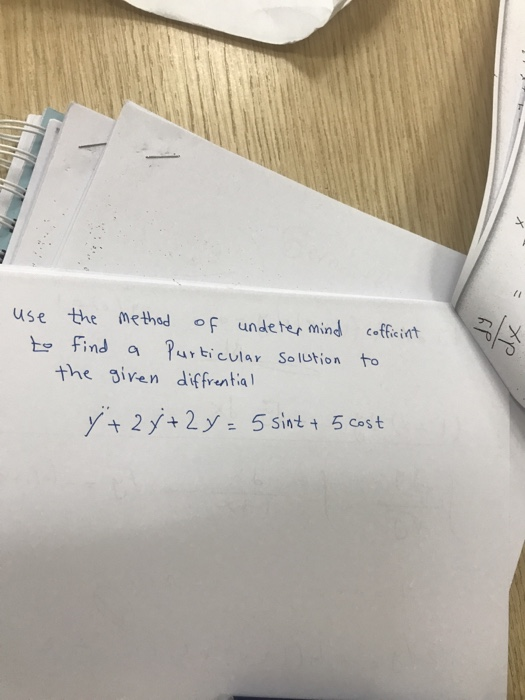 use the method of undetermind cofficint
to find a Purticular solution to
the given diffrential
ÿ + 2ẏ + 2y = 5 sint + 5 cost
dy
dx
=
x